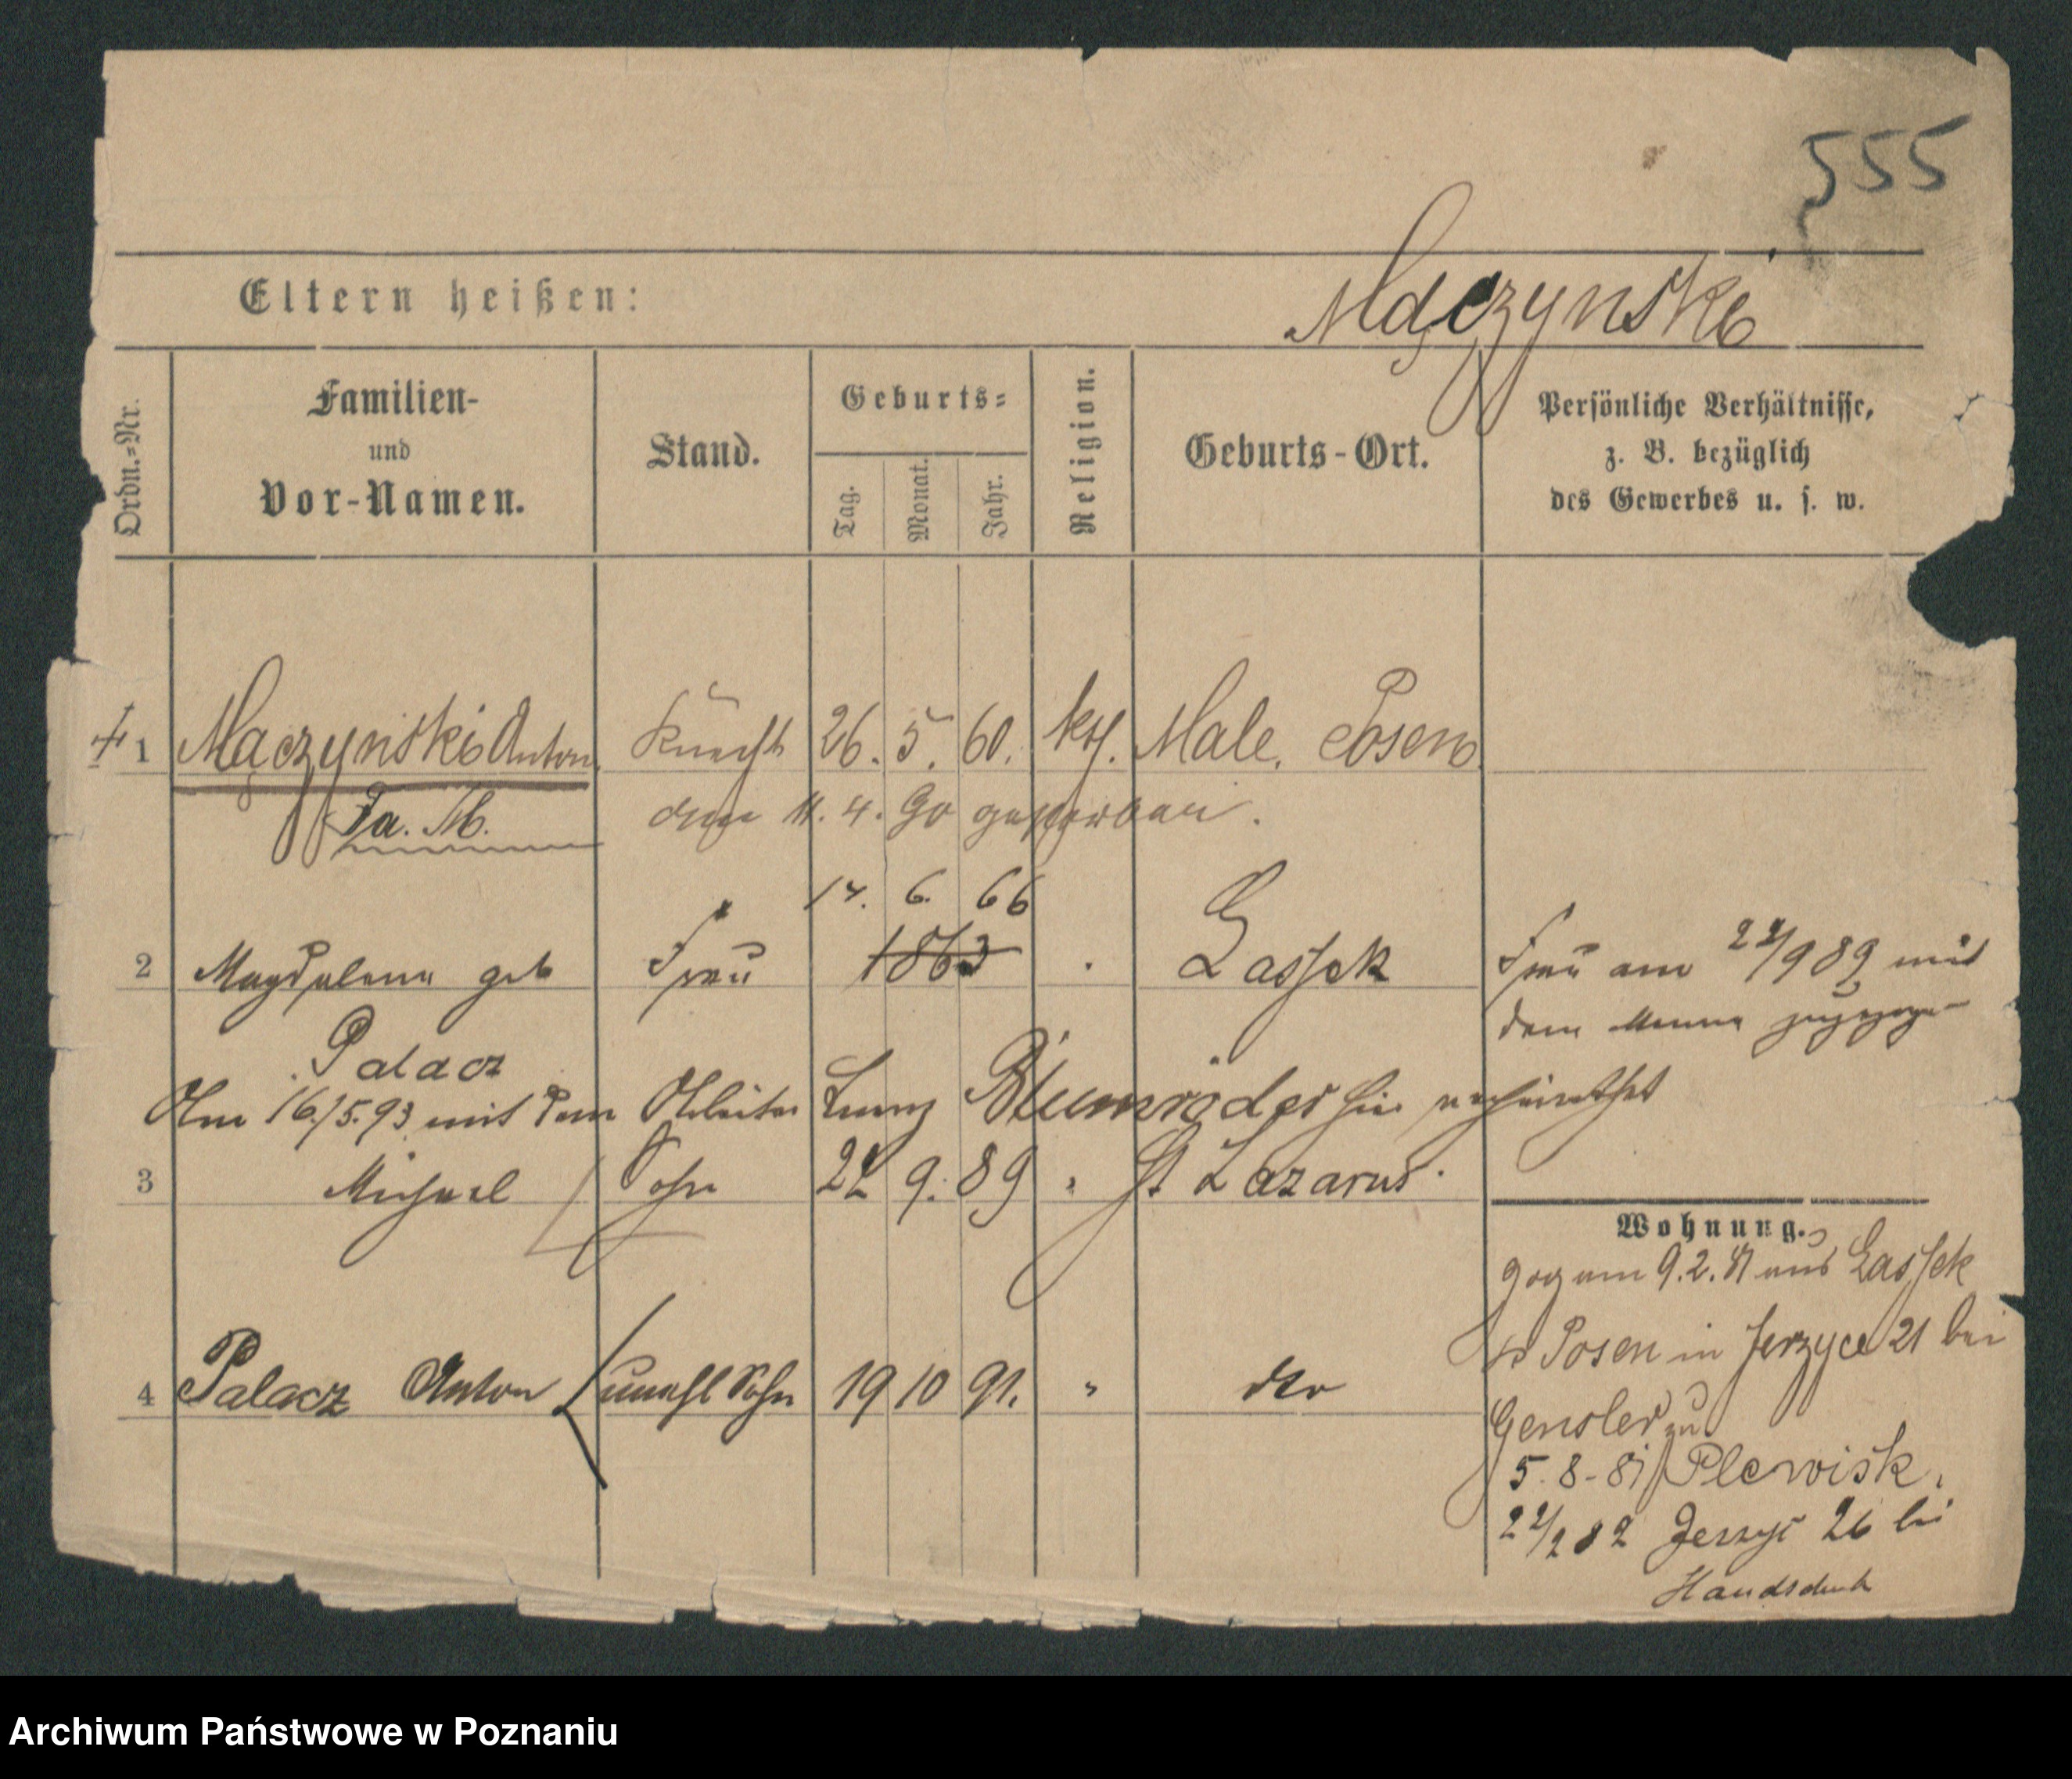 555
Eltern heißen:
Mączynski
Ordn.-Nr.
Familien-
und
Vor-Namen.
Stand.
Geburts-
Tag.
Monat.
Jahr.
Religion.
Geburts-Ort.
Persönliche Verhältnisse,
z. B. bezüglich
des Gewerbes u. s. w.
1 Mączynski Anton Knecht 26. 5. 60. kth. Male. Posen
Fa. M. den 11. 4. 90 gestorben.
17. 6. 66
2 Magdalena geb Frau 1863 Lassek Frau am 22/9 89 mit
dem Manne
Palacz
Am 16./5.93 mit dem Arbeiter Blumröder hier verheirathet
3 Michael Sohn 22 9. 89 " St Lazarus.
Wohnung.
zog am 9.2.81 aus Lassek
Posen in Jerzyce 21 bei
4 Palacz Anton Knecht Sohn 19 10 91. " dto
Gensler zu
5.8-81 Plewisk.
22/2 82 Jerzyc 26 bei
Handschuh
Archiwum Państwowe w Poznaniu